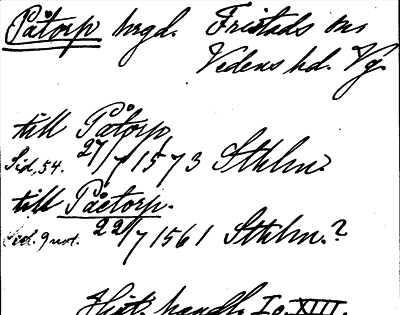 Påtorp hrgd. Fristads sn
Vedens hd. Vg.
till Påtorp
Sid, 54. 27/7 1573 Sthlm.
till Påetorp.
22/7 1561 Sthlm.?
Hist. handl. Io. XIII.